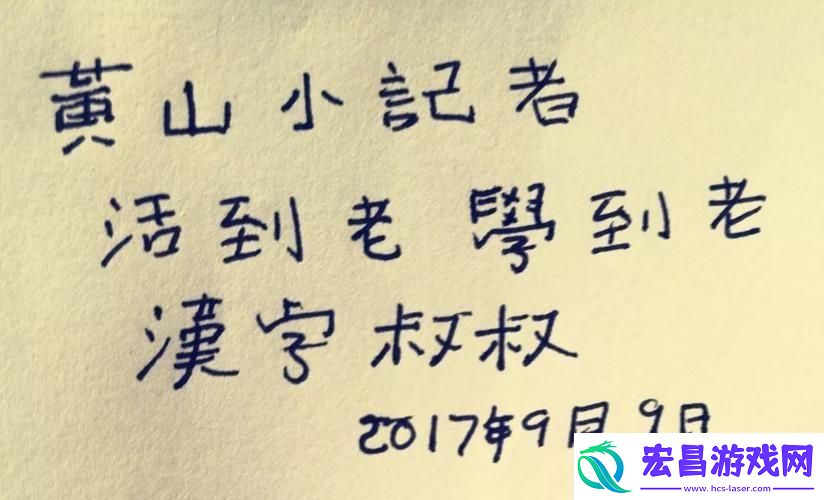 黃山小記者
活到老 學到老
漢字叔叔
2017年9月9日
宏昌游戏网
www.hcs-laser.com